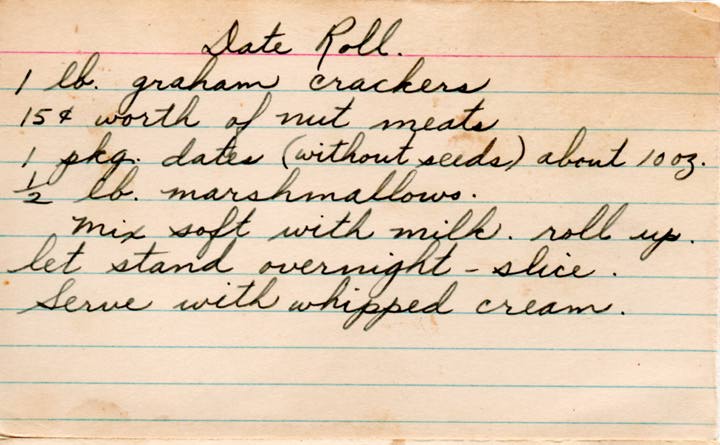 Date Roll.
1 lb. graham crackers
15¢ worth of nut meats
1 pkg. dates (without seeds) about 10 oz.
1/2 lb. marshmallows.
Mix soft with milk. roll up.
let stand overnight - slice.
Serve with whipped cream.